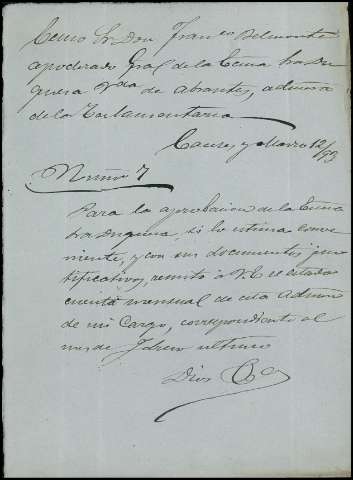 Excmo Sr Don Franco Belmonte
apoderado Gral de la Excma Sra Du
quesa Vda de Abrantes, admora
de la Testamentaria
Marzo 12/93
Numo 7
Para la aprobacion de la Excma
Sra Duquesa, si lo estima conve
niente, y con sus documentos jus
tificativos, remito á VE el estado
cuenta mensual de esta Admon
de mi Cargo, correspondiente al
mes de Febrero ultimo
Dios &a